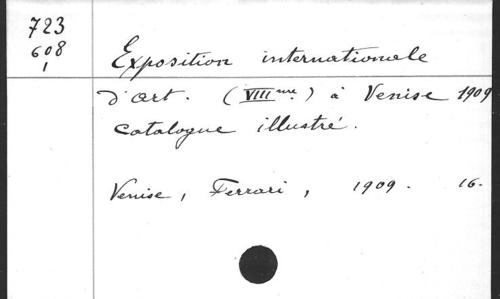 723
608
1
Exposition internationale
d'art. (VIIIme.) à Venise 1909
Catalogue illustré.
Venise, Ferrari, 1909. 16.